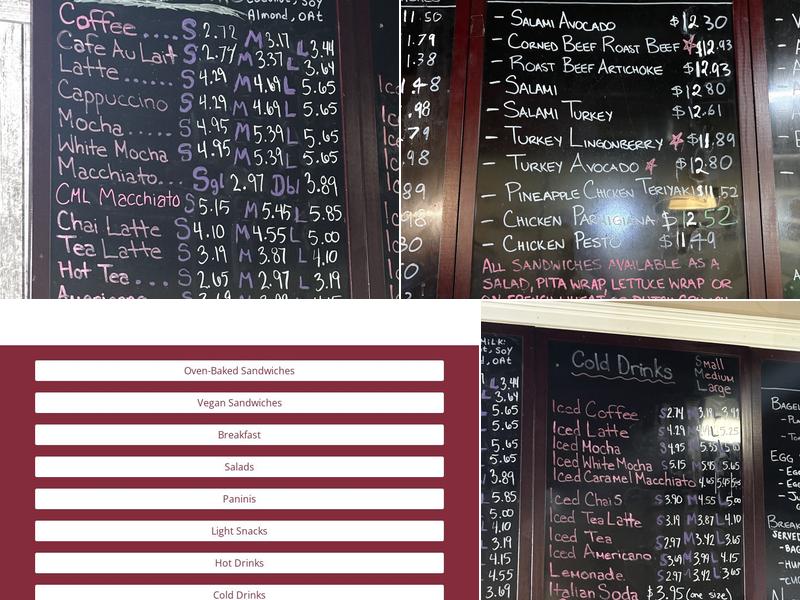 Coconut, Soy
Almond, OAt
Coffee ..... S 2.72 M 3.17 L 3.44
Cafe Au Lait S 2.74 M 3.37 L 3.64
Latte ...... S 4.29 M 4.69 L 5.65
Cappuccino S 4.29 M 4.69 L 5.65
Mocha ...... S 4.95 M 5.39 L 5.65
White Mocha S 4.95 M 5.39 L 5.65
Macchiato... Sgl 2.97 Dbl 3.89
CML Macchiato S 5.15 M 5.45 L 5.85
Chai Latte S 4.10 M 4.55 L 5.00
Tea Latte S 3.19 M 3.87 L 4.10
Hot Tea .... S 2.65 M 2.97 L 3.19
Americano
11.50
1.79
1.38
- Salami Avocado $12.30
- Corned Beef Roast Beef $12.93
- Roast Beef Artichoke $12.93
- Salami $12.80
- Salami Turkey $12.61
- Turkey Lingonberry $11.89
- Turkey Avocado $12.80
- Pineapple Chicken Teriyaki $11.52
- Chicken Parmigiana $12.52
- Chicken Pesto $11.49
All sandwiches available as a
salad, pita wrap, lettuce wrap or
Oven-Baked Sandwiches
Vegan Sandwiches
Breakfast
Salads
Paninis
Light Snacks
Hot Drinks
Cold Drinks
Cold Drinks
Small
Medium
Large
Iced Coffee S 2.74 M 3.19 L 3.47
Iced Latte S 4.29 L 5.25
Iced Mocha S 4.95 M 5.35
Iced White Mocha S 5.15 M 5.45 5.65
Iced Caramel Macchiato 4.65
Iced Chais S 3.90 M 4.55 L 5.00
Iced Tea Latte S 3.19 M 3.87 L 4.10
Iced Tea S 2.97 M 3.42 L 3.65
Iced Americano S 3.69 M 3.99 L 4.15
Lemonade S 2.97 M 3.42 L 3.65
Italian Soda $3.95 (one size)
3.44
3.64
5.65
5.65
5.65
5.65
3.89
5.85
5.00
4.10
3.19
4.15
4.55
3.69